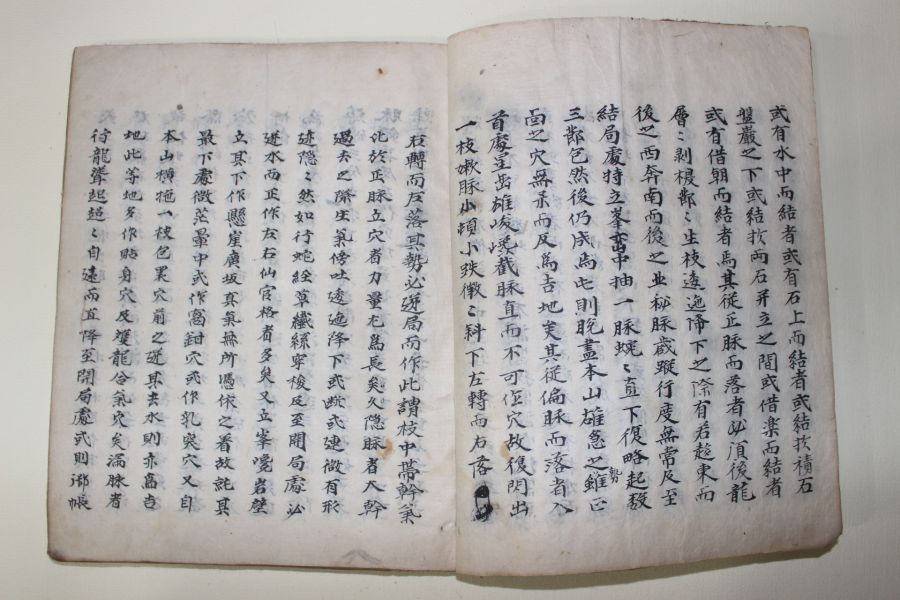 或有水中而結者或有石上而結者或結於積石
盤巖之下或結於兩石并立之間或借樂而結者
或有借朝而結者焉其從正脉而落者必頂後龍
層〻剝換鄒〻生枝逶迤降下之際有若趍東而
後之西奔南而後之並秘脉藏蹤行度無常反至
結局處特立峯巒中抽一脉蜿〻直下復略起
三節包然後仍成尚屯則脫盡本山雄急之勢雖正
面之穴無不而反爲吉地矣其從偏脉而落者入
首處星岳雄峻峩截脉直而不可作穴故復閃出
一枝嫩脉小頓小跌微〻斜下左轉而右落
右轉而左落其勢必逆局而作此謂枝中帶幹氣
比於正脉立穴者力量尤爲長矣久隱脉者大幹
過去之際生氣傍吐逶迤降下或斷或連微有形
迹隱〻然如行蛇經草纖絲穿梭反至開局處必
逆水而正作左右仙官格者多矣又立峯嶝岩壁
立其下作懸崖廣坂眞氣無所憑依之看故託其
最下處微茫暈中或作窩鉗穴或作乳突穴又自
本山橫拖一枝包裹穴前之逆其去水則亦爲吉
地此等地多作貼身穴及雙龍合氣穴矣漏脉者
行龍聳起超〻自遠而直降至開局處或則御帳